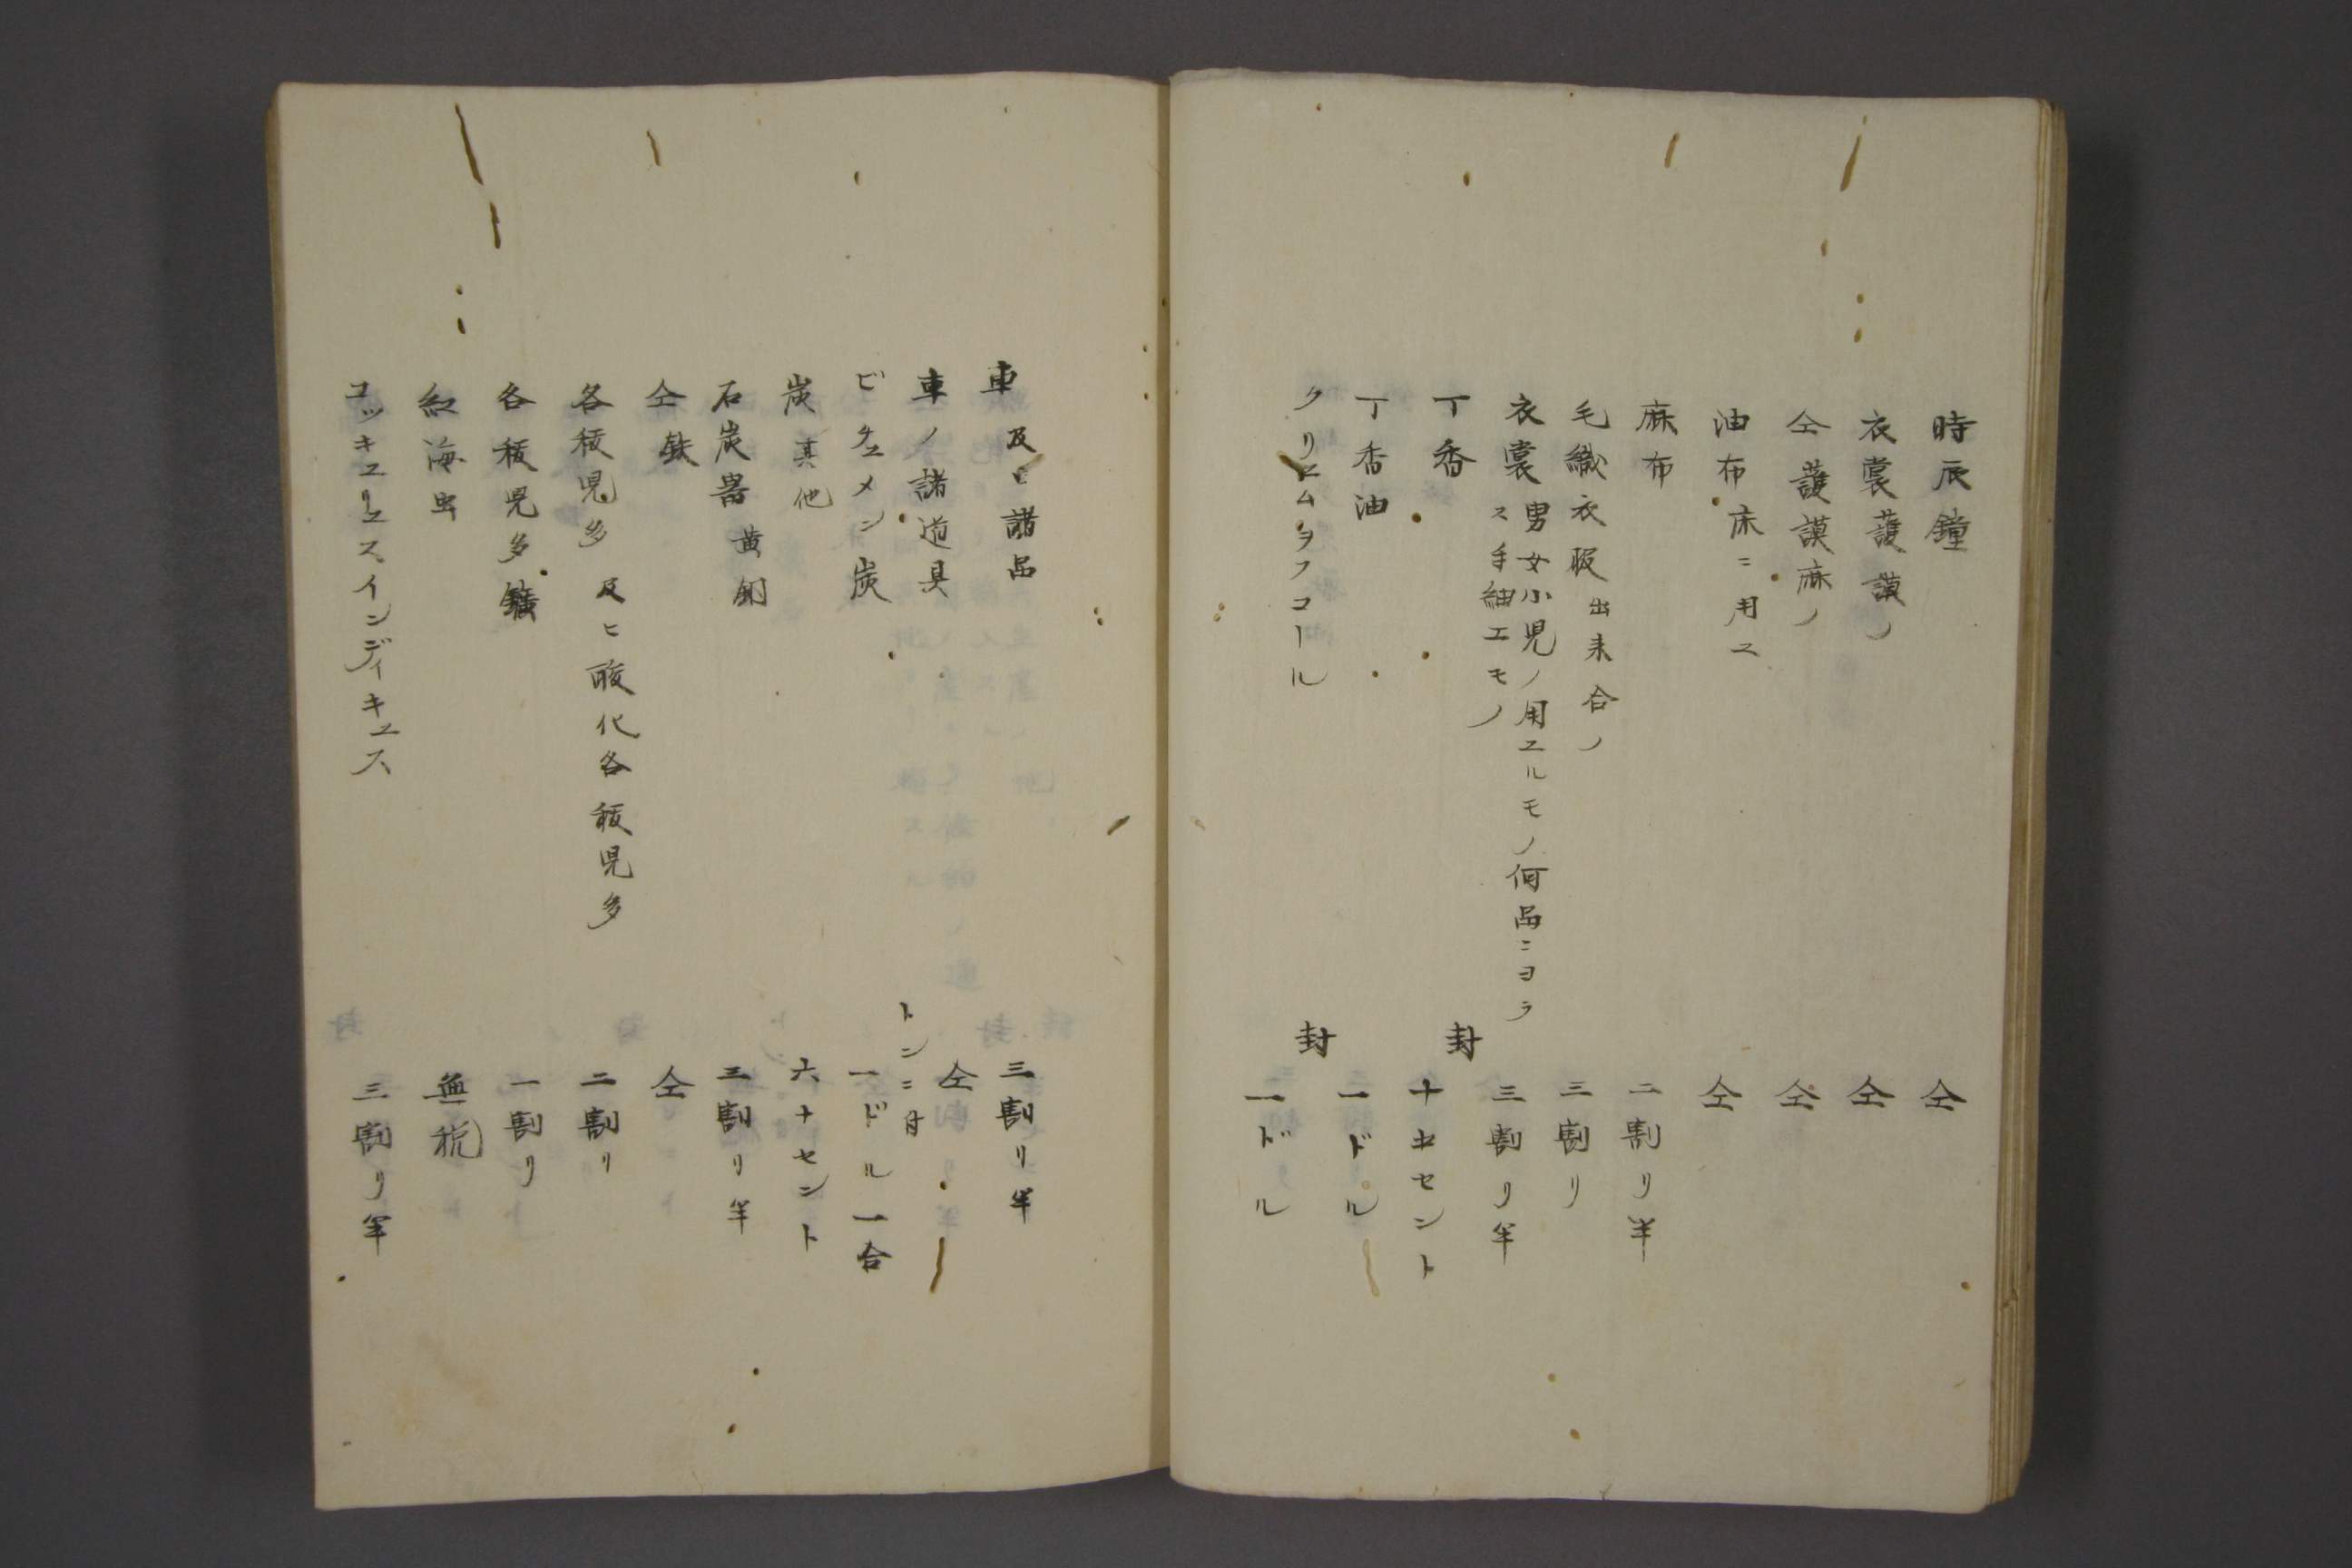 時辰鐘 仝
衣裳護謨ノ 仝
仝護謨麻ノ 仝
油布床ニ用ユ 仝
麻布 二割リ半
毛織衣服出来合ノ 三割リ
衣裳男女小児ノ用ユルモノ何品ニヨラ
ス手細工モノ 三割リ半
丁香 封 十五セント
丁香油 一ドル
クリエムヲフコール 封 一ドル
車及ヒ諸品 三割リ半
車ノ諸道具 仝
ビチュメン炭 トンニ付 一ドル一合
炭其他 六十セント
石炭器黄銅 三割リ半
仝鉄 仝
各稜児多及ヒ酸化各稜児多 二割リ
各稜児多鑛 一割リ
紅海虫 無税
コッキュリュスインディキュス 三割リ半